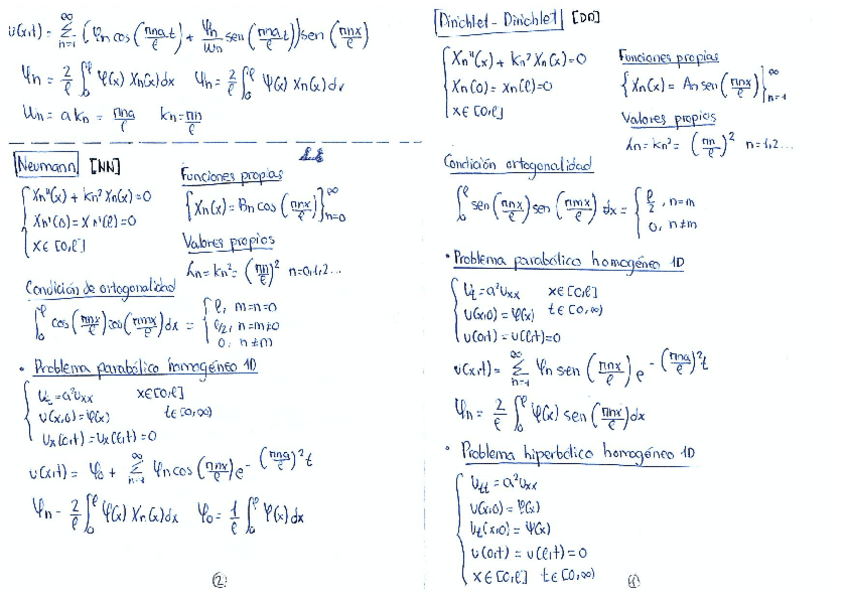 u(x,t) = ∑_{n=1}^{∞} (φn cos(πna t/ℓ) + ψn/ωn sen(πna t/ℓ)) sen(πnx/ℓ)
φn = 2/ℓ ∫_0^ℓ φ(x) Xn(x)dx   ψn = 2/ℓ ∫_0^ℓ ψ(x) Xn(x)dx
ωn = a kn = πna/ℓ   kn = πn/ℓ
Neumann [NN]
{ Xn''(x) + kn² Xn(x) = 0
Xn'(0) = Xn'(ℓ) = 0
x ∈ [0,ℓ]
Funciones propias
{ Xn(x) = Bn cos(πnx/ℓ) }_{n=0}^{∞}
Valores propios
λn = kn² = (πn/ℓ)²  n=0,1,2...
Condición de ortogonalidad
∫_0^ℓ cos(πnx/ℓ) cos(πmx/ℓ) dx = { ℓ, m=n=0
ℓ/2, n=m≠0
0, n≠m
• Problema parabólico homogéneo 1D
{ ut = a²uxx   x ∈ [0,ℓ]
u(x,0) = φ(x)   t ∈ [0,∞)
ux(0,t) = ux(ℓ,t) = 0
u(x,t) = φ0 + ∑_{n=1}^{∞} φn cos(πnx/ℓ) e^{-(πna/ℓ)² t}
φn - 2/ℓ ∫_0^ℓ φ(x) Xn(x)dx   φ0 = 1/ℓ ∫_0^ℓ φ(x)dx
②
Dirichlet - Dirichlet [DD]
{ Xn''(x) + kn² Xn(x) = 0
Xn(0) = Xn(ℓ) = 0
x ∈ [0,ℓ]
Funciones propias
{ Xn(x) = An sen(πnx/ℓ) }_{n=1}^{∞}
Valores propios
λn = kn² = (πn/ℓ)²  n=1,2...
Condición ortogonalidad
∫_0^ℓ sen(πnx/ℓ) sen(πmx/ℓ) dx = { ℓ/2, n=m
0, n≠m
• Problema parabólico homogéneo 1D
{ ut = a²uxx   x ∈ [0,ℓ]
u(x,0) = φ(x)   t ∈ [0,∞)
u(0,t) = u(ℓ,t) = 0
u(x,t) = ∑_{n=1}^{∞} φn sen(πnx/ℓ) e^{-(πna/ℓ)² t}
φn = 2/ℓ ∫_0^ℓ φ(x) sen(πnx/ℓ)dx
• Problema hiperbólico homogéneo 1D
{ utt = a²uxx
u(x,0) = φ(x)
ut(x,0) = ψ(x)
u(0,t) = u(ℓ,t) = 0
x ∈ [0,ℓ]  t ∈ [0,∞)
①